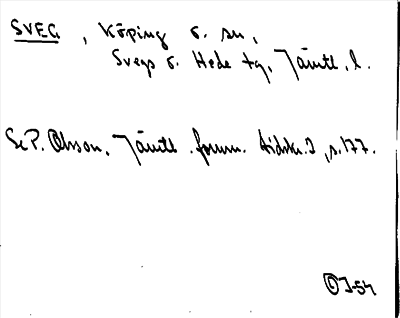 SVEG, Köping o. sn,
Svegs o. Hede tg, Jämtl. l.
Se P. Olsson, Jämtl. fornm. tidskr. I, s. 177.
OJ-54